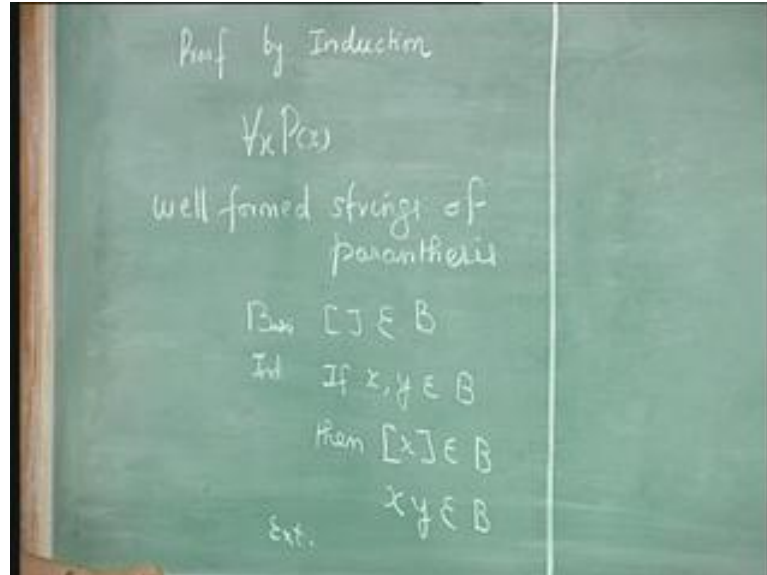 Proof by Induction
∀x P(x)
well formed strings of
paranthesis
Basis [] ∈ B
Ind If x, y ∈ B
then [x] ∈ B
xy ∈ B
Ext.